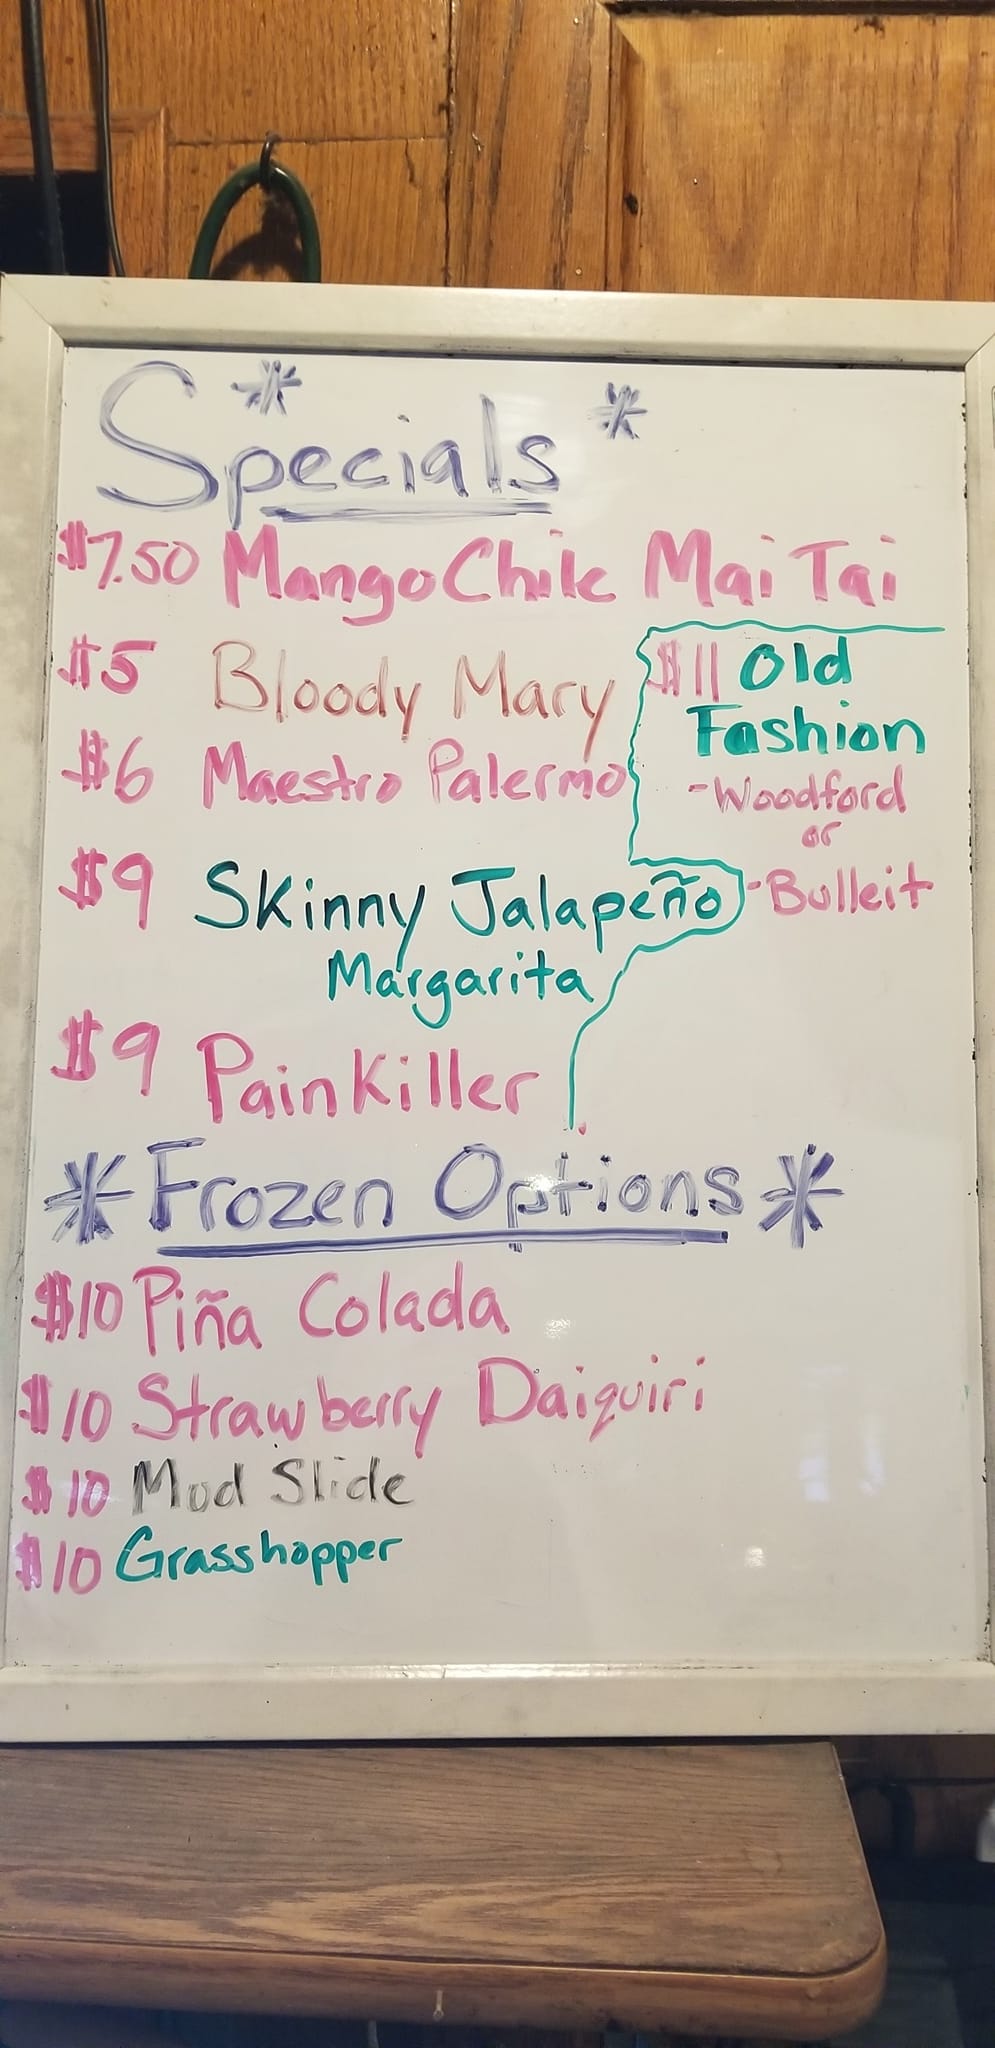 *Specials*
$7.50 Mango Chile Mai Tai
$5 Bloody Mary
$6 Maestro Palermo
$9 Skinny Jalapeño
Margarita
$9 Painkiller
$11 Old
Fashion
-Woodford
or
-Bulleit
*Frozen Options*
$10 Piña Colada
$10 Strawberry Daiquiri
$10 Mud Slide
$10 Grasshopper